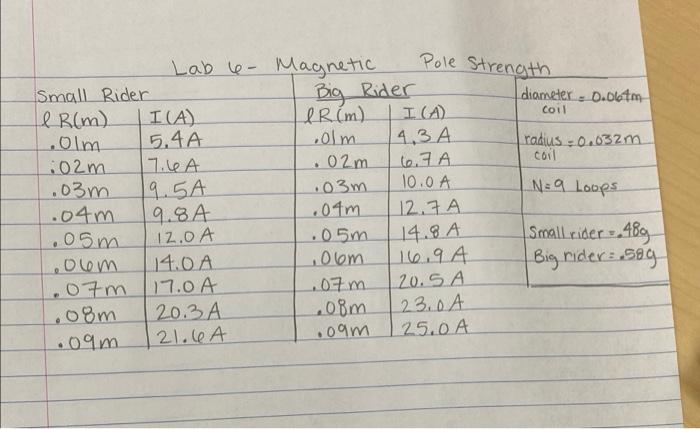 Lab 6 - Magnetic Pole Strength
Small Rider
ℓR(m) I(A)
.01m 5.4A
.02m 7.6A
.03m 9.5A
.04m 9.8A
.05m 12.0A
.06m 14.0A
.07m 17.0A
.08m 20.3A
.09m 21.6A
Big Rider
ℓR(m) I(A)
.01m 4.3A
.02m 6.7A
.03m 10.0A
.04m 12.7A
.05m 14.8A
.06m 16.9A
.07m 20.5A
.08m 23.0A
.09m 25.0A
diameter = 0.064m
coil
radius = 0.032m
coil
N=9 Loops
Small rider = .48g
Big rider = .58g